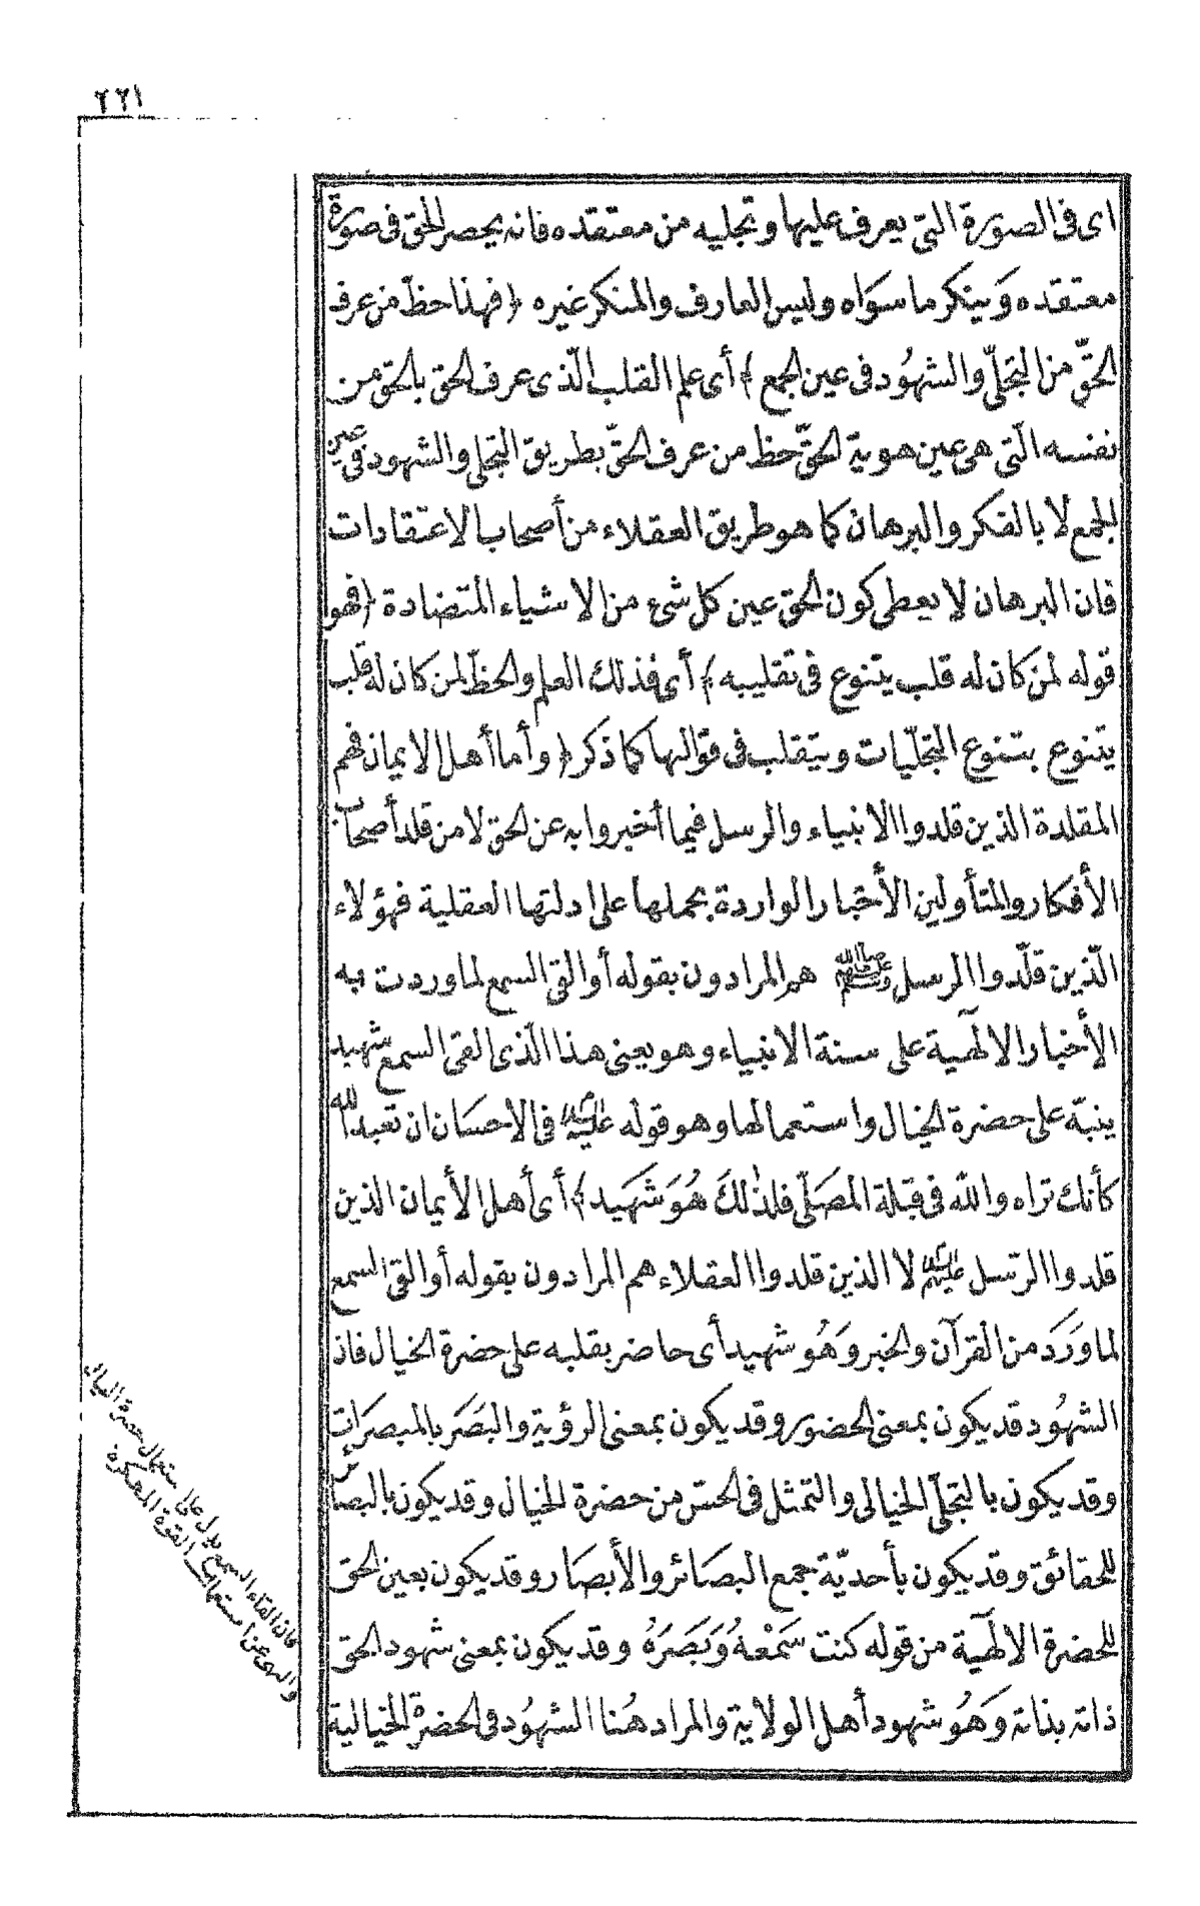 ٢٢١
اى فى الصورة التى يعرف عليها وتجليه من معتقده فانه يحصر الحق فى صورة
معتقده وَينكر ما سوَاه وليس العارف والمنكر غيره ﴿ فهذا حظّ من عرف
الحقّ من التجلّى والشهُود فى عين الجمع ﴾ أى علم القلب الّذى عرف الحق بالحق من
نفسه الّتى هى عين هوية الحقّ حظ من عرف الحقّ بطريق التجلى والشهود فى عين
الجمع لا بالفكر والبرهان كما هو طريق العقلاء من أصحاب الاعتقادات
فان البرهان لا يعطى كون الحق عين كل شئ من الاشياء المتضادة ﴿ فهو
قوله لمن كان له قلب يتنوع فى تقليبه ﴾ أى فذلك العلم والحظّ لمن كان له قلب
يتنوع بتنوع التجلّيات ويتقلب فى قوّالبها كما ذكر ﴿ وأما أهل الايمان فهم
المقلدة الذين قلدوا الانبياء والرسل فيما أخبروا به عن الحق لا من قلد أصحاب
الأفكار والمتأولين الأخبار الواردة بحملها على ادلتها العقلية فهؤلاء
الّذين قلّدوا الرسل صلى الله عليهم وسلم هم المرادون بقوله أو القى السمع لما وردت به
الأخبار الالٓهية على سنة الانبياء وهو يعنى هذا الّذى القى السمع شهيد
ينبّه على حضرة الخيال واستعمالها وهو قوله عليه السلام فى الاحسَان ان تعبد الله
كأنك تراه والله فى قبلة المصَلّى فلذٰلكَ هُوَ شَهيد ﴾ أى أهل الأيمان الذين
قلدوا الرسل عليهم السلام لا الذين قلدوا العقلاء هم المرادون بقوله أو القى السمع
لما وَرَدَ من القرآن والخبر وَهُو شهيد أى حاضر بقلبه على حضرة الخيال فان
الشهُود قد يكون بمعنى الحضور وقد يكون بمعنى الرؤية والبصَر بالمبصرَات
وقد يكون بالتجلّى الخيالى والتمثل فى الحس من حضرة الخيال وقد يكون بالبصَائر
للحقائق وقد يكون بأحديّة جمع البصَائر والأبصَار وقد يكون بعين الحق
للحضرة الالٓهية من قوله كنت سَمْعهُ وَبَصَرَهُ وقد يكون بمعنى شهود الحق
ذاته بذاته وَهُو شهود أهل الولاية والمراد هُنا الشهُود فى الحضرة الخيالية
فان القاء السمع يدل على استعمال حضرة الخيال
والنهى عن استعمال القوة المفكرة